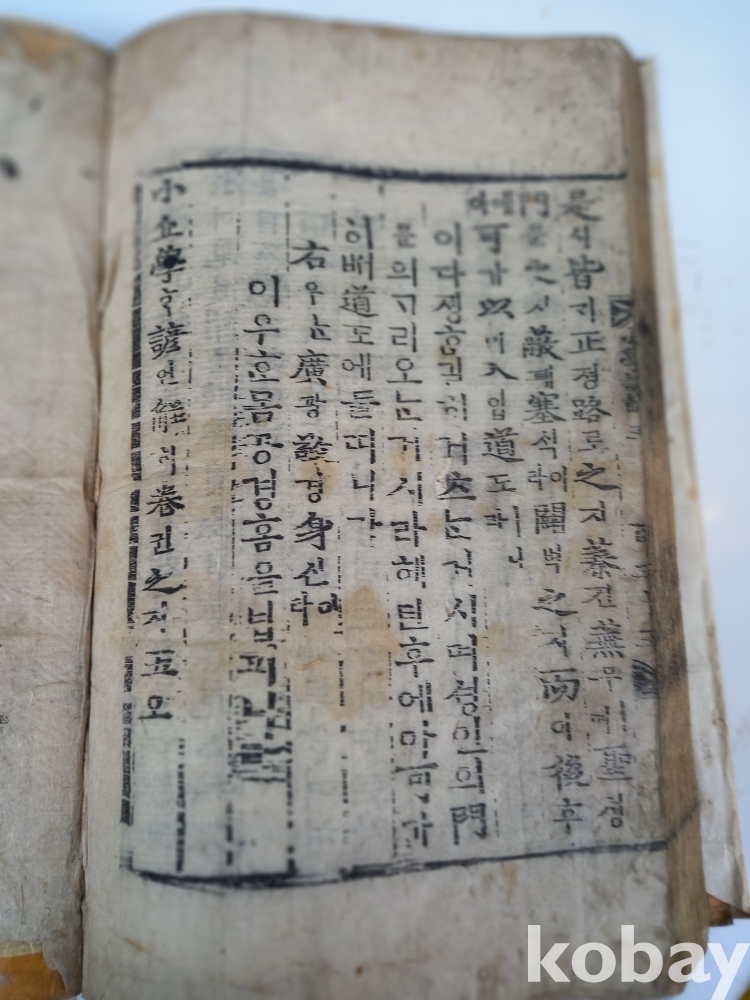 是시皆ᄀᆡ正졍路로之지蓁진蕪무ㅣ며聖셩
門문之지蔽폐塞ᄉᆡᆨ이라闢벽之지而이後후
에可가以이入입道도ㅣ니라
이다졍ᄒᆞᆫ길히거츠는거시며셩인의門
문의ᄀᆞ리오ᄂᆞᆫ거시라해틴후에아可가
히배道도에들띠니라
右우ᄂᆞᆫ廣광敬경身신이라
이우ᄒᆞᆫ몸공경홈을넙피
小쇼學ᄒᆞᆨ諺언解ᄒᆡ卷권之지五오
kobay